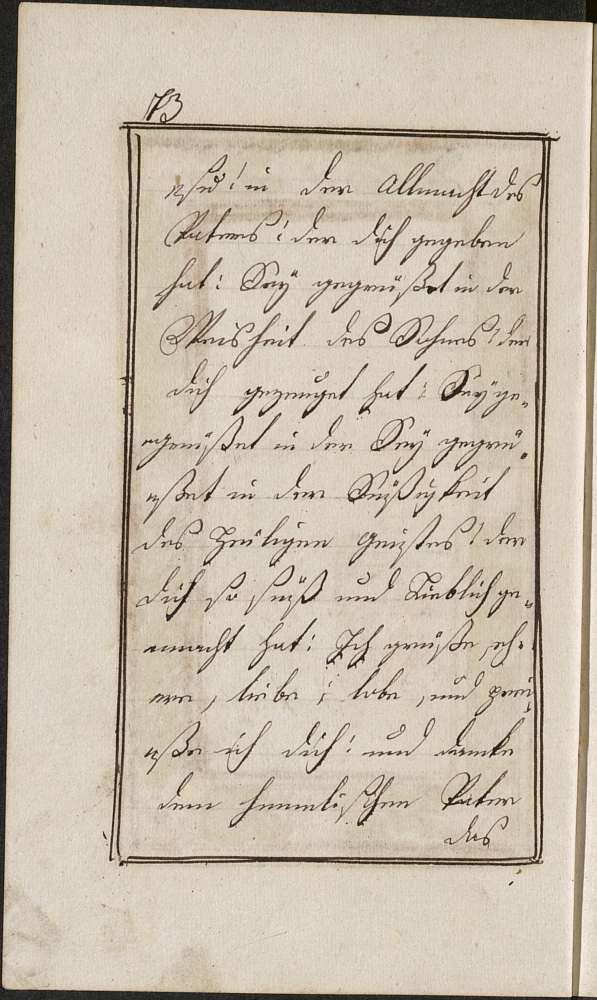 73
in der Allmacht des
Vaters! der dich gegeben
hat: Sey gegrüßet in der
Weisheit des Sohnes! der
dich gezeuget hat: Sey ge-
grüßet in der Sey gegrü-
ßet in der Süßigkeit
des Heiligen Geistes! der
dich so süß und Lieblich ge-
macht hat: Ich grüße, eh-
re, liebe; lobe, und prei-
ße ich dich! und danke
dem himmlischen Vater
das